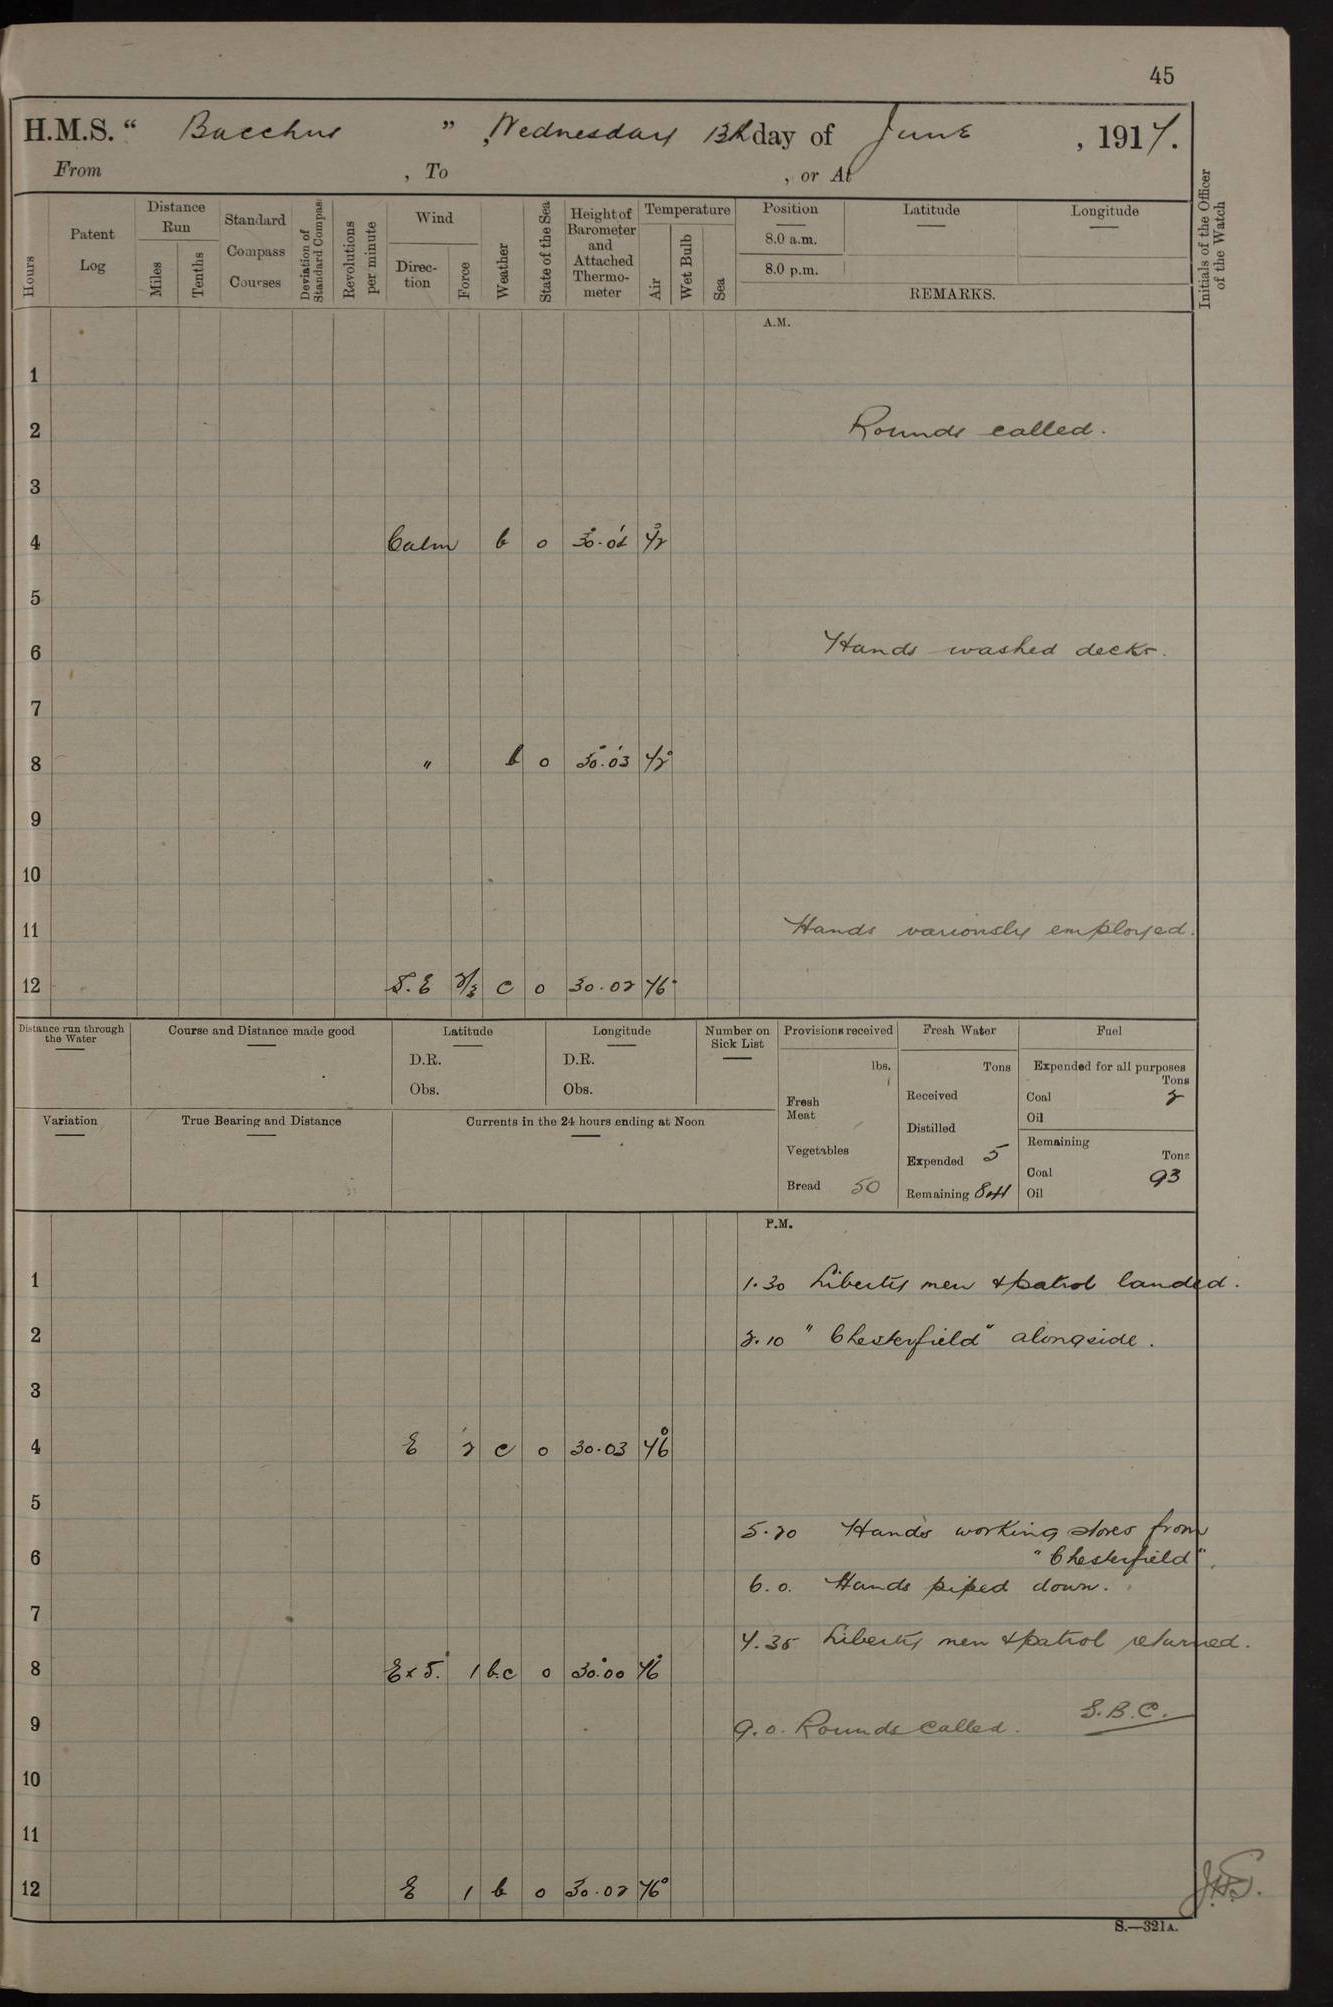 45
H.M.S. “ Bacchus ” , Wednesday 13th day of June , 1917.
From , To , or At
Hours
Patent Log
Distance Run
Miles
Tenths
Standard Compass Courses
Deviation of Standard Compass
Revolutions per minute
Wind
Direction
Force
Weather
State of the Sea
Height of Barometer and Attached Thermometer
Temperature
Air
Wet Bulb
Sea
Position
8.0 a.m.
8.0 p.m.
Latitude
Longitude
REMARKS.
Initials of the Officer of the Watch
A.M.
1
2 Rounds called.
3
4 Calm b o 72°
5
6 Hands washed decks.
7
8 " b o 30.03 72°
9
10
11 Hands variously employed.
12 S.E 2/3 c o 30.02 76°
Distance run through the Water
Course and Distance made good
Latitude
D.R.
Obs.
Longitude
D.R.
Obs.
Number on Sick List
Provisions received
lbs.
Fresh Meat
Vegetables
Bread 50
Fresh Water
Tons
Received
Distilled
Expended 5
Remaining
Fuel
Expended for all purposes
Tons
Coal 2
Oil
Remaining
Tons
Coal 93
Oil
Variation
True Bearing and Distance
Currents in the 24 hours ending at Noon
P.M.
1 1.30 Liberty men & patrol landed.
2 2.10 "Chesterfield" alongside.
3
4 E 2 c o 30.03 76°
5
5.20 Hands working stores from
6 "Chesterfield".
6.0. Hands piped down.
7
7.35 Liberty men & patrol returned.
8 E x S. 1 b.c o 30.00 76°
S.B.C.
9 9.0. Rounds called.
10
11
12 E 1 b o 30.02 76°
S.—321A.